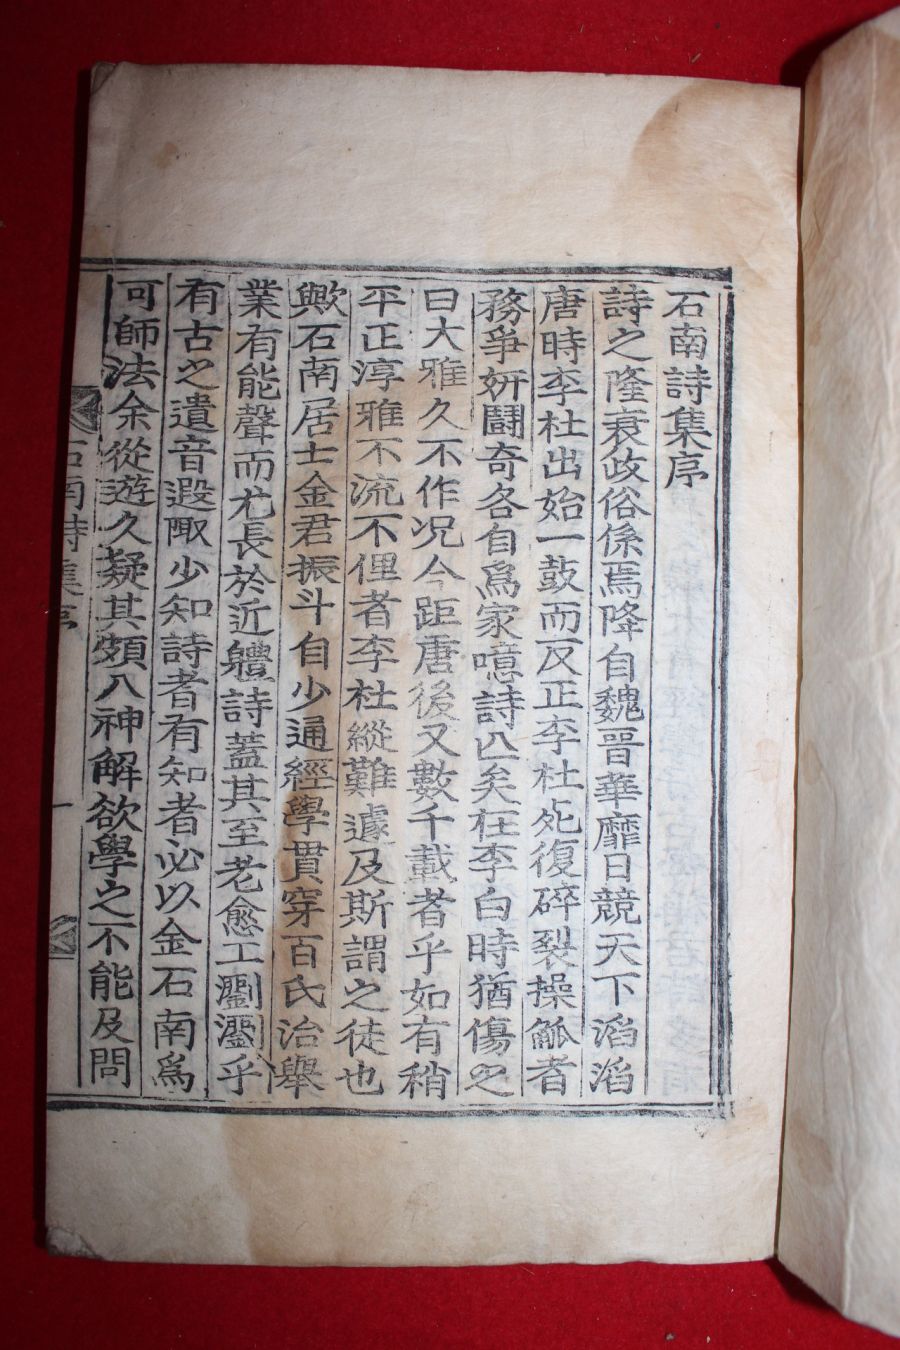 石南詩集序
詩之隆衰政俗係焉降自魏晉華靡日競天下滔滔
唐時李杜出始一鼓而反正李杜死復碎裂操觚者
務爭姸鬪奇各自爲家噫詩亾矣在李白時猶傷之
曰大雅久不作况今距唐後又數千載者乎如有稍
平正淳雅不流不俚者李杜縱難遽及斯謂之徒也
歟石南居士金君振斗自少通經學貫穿百氏治擧
業有能聲而尤長於近軆詩蓋其至老愈工瀏瀏乎
有古之遺音遐陬少知詩者有知者必以金石南爲
可師法余從遊久凝其頗八神解欲學之不能及問
石南詩集序
一